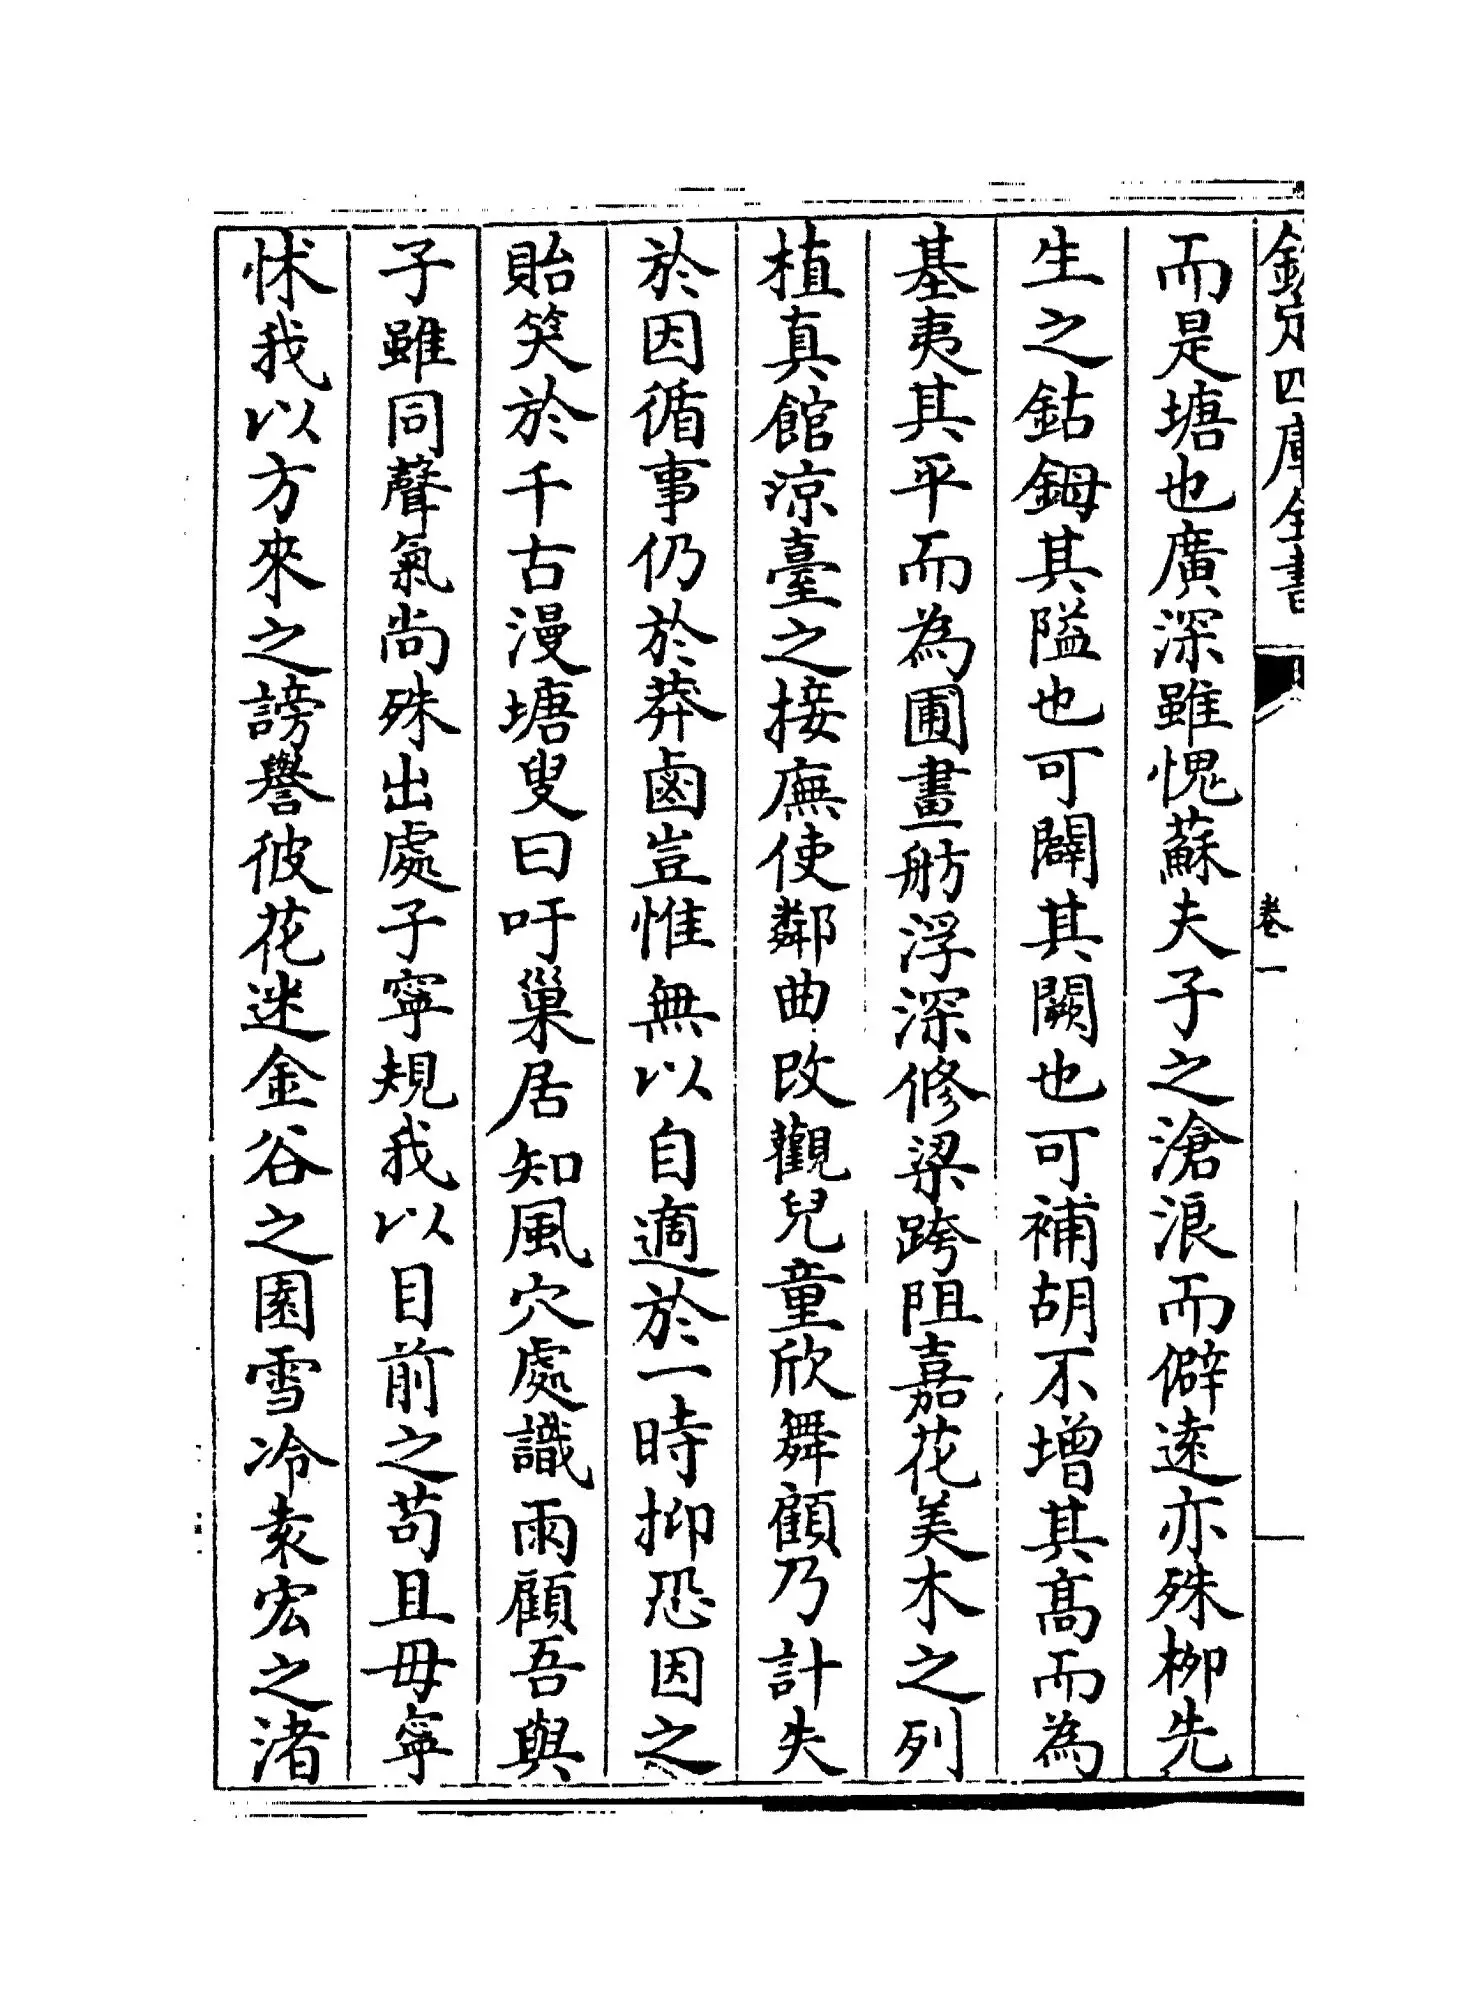 欽定四庫全書
卷一
而是塘也廣深雖愧蘇夫子之滄浪而僻逺亦殊柳先
生之鈷鉧其隘也可闢其闕也可補胡不增其髙而為
基夷其平而為圃畫舫浮深修梁跨阻嘉花美木之列
植真館涼臺之接廡使鄰曲改觀兒童欣舞顧乃計失
於因循事仍於莽鹵豈惟無以自適於一時抑恐因之
貽笑於千古漫塘叟曰吁巢居知風穴處識雨顧吾與
子雖同聲氣尚殊出處子寧規我以目前之苟且毋寧
怵我以方來之謗譽彼花迷金谷之園雪冷袁宏之渚